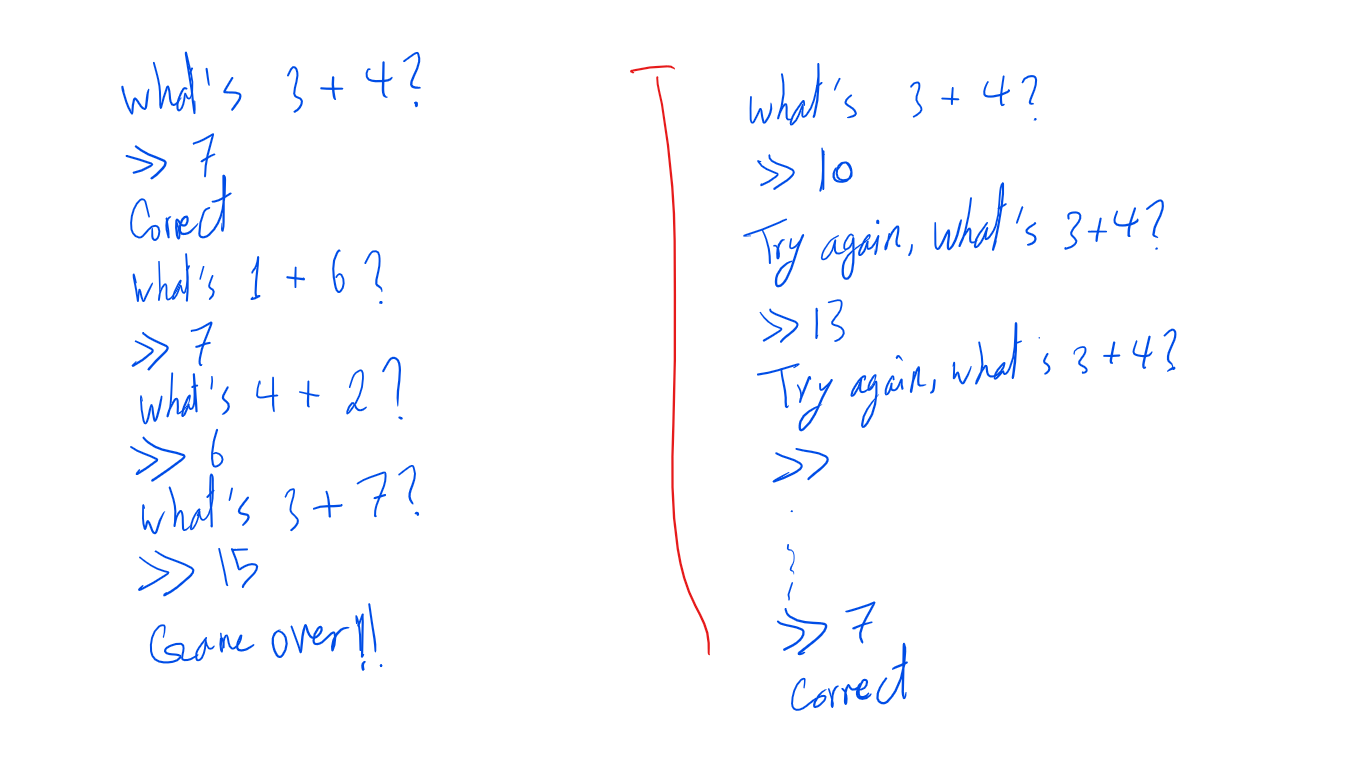 what's 3 + 4?
>> 7
Correct
what's 1 + 6?
>> 7
what's 4 + 2?
>> 6
what's 3 + 7?
>> 15
Game over!!
what's 3 + 4?
>> 10
Try again, what's 3+4?
>> 13
Try again, what's 3+4?
>>
>> 7
Correct